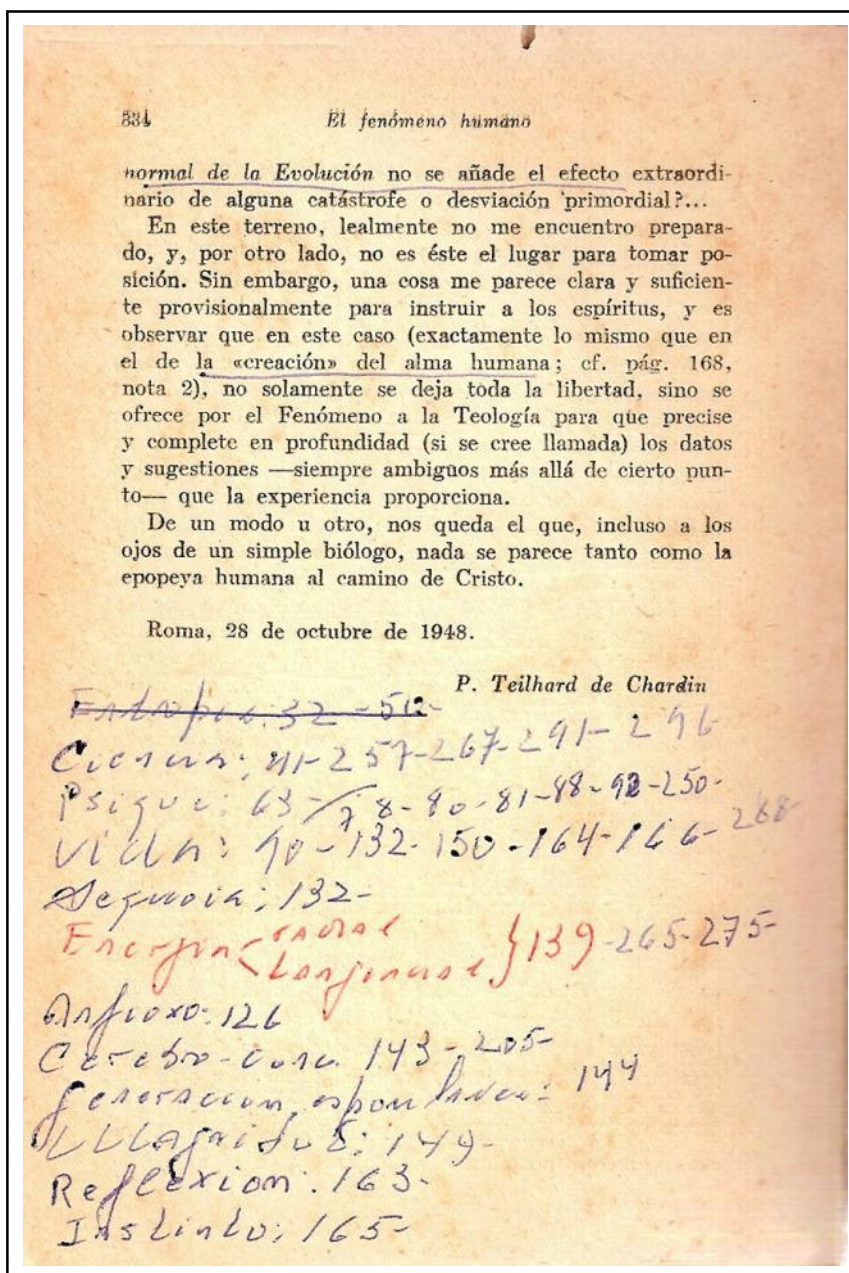 334 El fenómeno humano
normal de la Evolución no se añade el efecto extraordi-
nario de alguna catástrofe o desviación primordial?...
En este terreno, lealmente no me encuentro prepara-
do, y, por otro lado, no es éste el lugar para tomar po-
sición. Sin embargo, una cosa me parece clara y suficien-
te provisionalmente para instruir a los espíritus, y es
observar que en este caso (exactamente lo mismo que en
el de la «creación» del alma humana; cf. pág. 168,
nota 2), no solamente se deja toda la libertad, sino se
ofrece por el Fenómeno a la Teología para que precise
y complete en profundidad (si se cree llamada) los datos
y sugestiones —siempre ambiguos más allá de cierto pun-
to— que la experiencia proporciona.
De un modo u otro, nos queda el que, incluso a los
ojos de un simple biólogo, nada se parece tanto como la
epopeya humana al camino de Cristo.
Roma, 28 de octubre de 1948.
P. Teilhard de Chardin
Entropia: 32-50-
Ciencia: 41-257-267-291-296
Psique: 63-78-80-81-88-92-250-
Vida: 90-132-150-164-166-288-
Sequoia: 132-
Energia radial
tangencial } 139-265-275-
Anfioxo: 126
Cerebro- 143-205-
generacion espontanea: 144
149-
Reflexion: 163-
Instinto: 165-